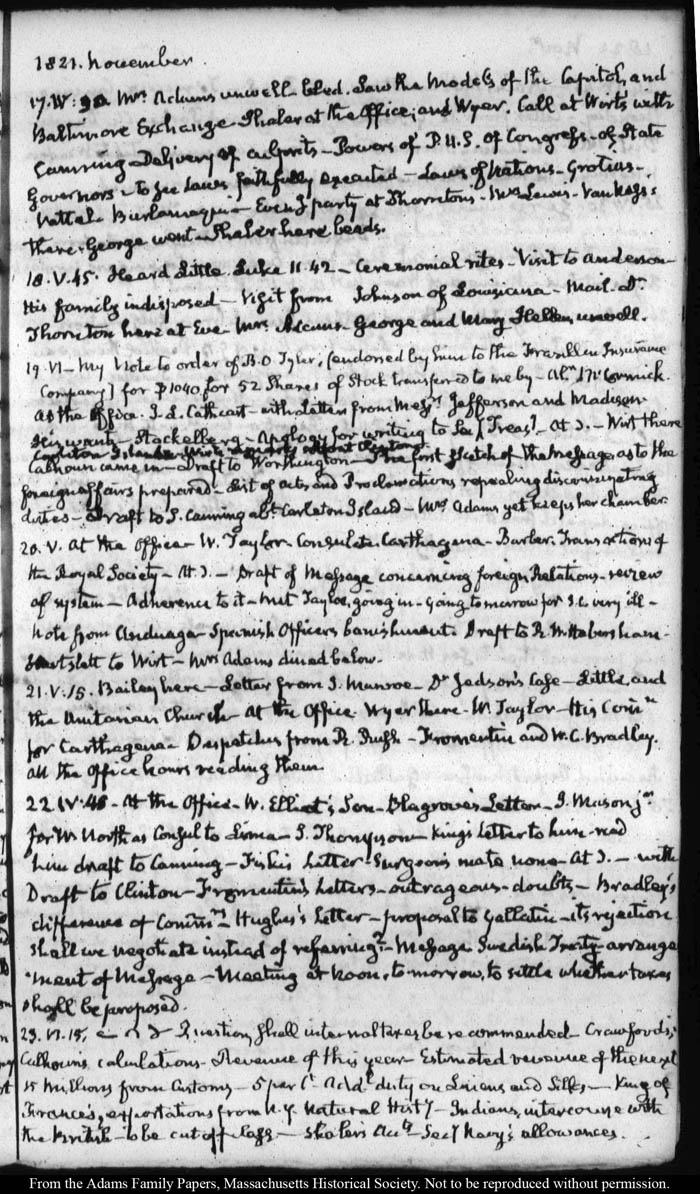 1821. November.
17. IV: 30 Mrs Adams unwell bled. Saw the Models of the Capitol, and
Baltimore Exchange Thaler at the Office, and Wyer. Call at Wirt's with
Canning Delivery of culprits – Powers of P.U.S. of Congress – of State
Governors – to see Laws faithfully executed – Laws of Nations – Grotius –
Vattel Burlamaqui – Eveng party at Thornton's – Mrs Lewis – Van Ness's
there. George went – Thaler here beads.
18. V. 45. Heard Little. Luke 11. 42 – Ceremonial rites – Visit to Anderson
His family indisposed – Visit from Johnson of Louisiana – Mail. Dr
Thornton here at Eve – Mrs Adams – George and Mary Hellen, unwell.
19. VI – My Note to order of B.O Tyler, (endorsed by him to the Franklin Insurance
Company) for $1040 for 52 Shares of Stock transferred to me by – Alr McCormick.
At the Office. J. L. Cathcart – with Letters from Messrs Jefferson and Madison
His wants – Stackelberg – Apology for writing to Secy Treasy – At J. – Wirt there
Carleton Island
Calhoun came in – Draft to Worthington – The first sketch of the Message as to the
foreign affairs prepared – List of acts and Proclamations repealing discriminating
duties – Draft to S. Canning abt Carleton Island – Mrs Adams yet keeps her chamber.
20. V. At the Office – W. Taylor Consulate Carthagena – Barber. Transactions of
the Royal Society – At J. – Draft of Message concerning foreign Relations – review
of system – Adherence to it – Met Tayloe, going in – going tomorrow for S.C. very ill –
Note from Anduaga – Spanish Officers banishment. Draft to R. W. Habersham –
to Wirt – Mrs Adams dined below.
21. V. 15. Bailey here – Letter from J. Munroe – Dr Judson's Case – Little, and
the Unitarian Church – At the Office Wyer there – W. Taylor – His Commn
for Carthagena – Despatches from R. Rush – Fromentin and W. C. Bradley.
All the Office hours reading them.
22. IV. 45 – At the Office – W. Elliot's Son – Blagrove's Letter – J. Mason jr
for W. North as Consul to Lima – S. Thompson – King's Letter to him – read
him draft to Canning – Fisk's Letter Surgeon's mate none – At J. – with
Draft to Clinton – Fromentin's Letters – outrageous – doubts – Bradley's
difference of Commrs Hughes's Letter – proposal to Gallatin – its rejection
Shall we negotiate instead of referring? – Message Swedish Treaty – arrange
ment of Message – Meeting at Noon, to-morrow, to settle whether taxes
shall be proposed.
23. VI. 15. Question, shall internal taxes be recommended – Crawford's,
Calhoun's calculations – Revenue of this year – Estimated revenue of the next
15 Millions from Customs – 5 per Ct Addl duty on Linens and Silks – King of
France's, exportations from N.Y. Natural Histy – Indians, intercourse with
the British – to be cut off – Thaler's Accts – Secy Navy's allowances.
From the Adams Family Papers, Massachusetts Historical Society. Not to be reproduced without permission.